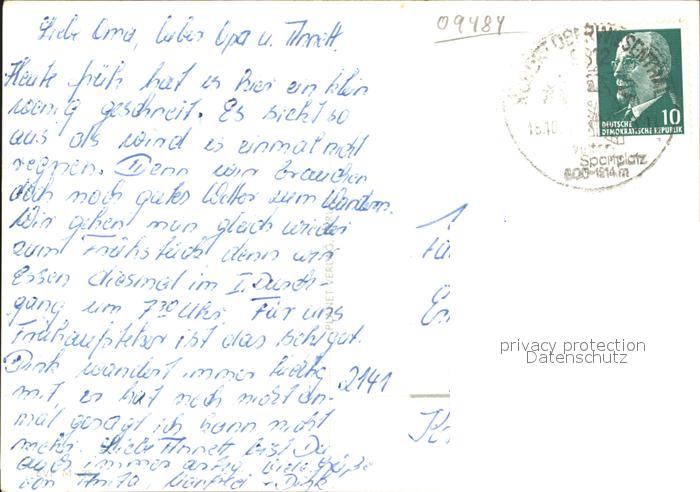 09484
Liebe Oma, lieber Opa u. Annett.
Heute früh hat es hier ein klein
wenig geschneit. Es sieht so
aus als wird es einmal nicht
regnen. Denn wir brauchen
doch noch gutes Wetter zum Wandern.
Wir gehen nun gleich wieder
zum Frühstück denn wir
Essen diesmal im I. Durch-
gang um 7 30 Uhr. Für uns
Frühaufsteher ist das sehr gut.
Dirk wandert immer tüchtig
mit, er hat noch nicht ein-
mal gesagt ich kann nicht
mehr. Liebe Annett, bist Du
auch immer artig. Viele Grüße
von Anita, Manfred u. Dirk.
2141
PLANET-VERLAG
KURORT OBERWIESENTHAL
Sportplatz
800-1214 m
10
DEUTSCHE
DEMOKRATISCHE REPUBLIK
privacy protection
Datenschutz